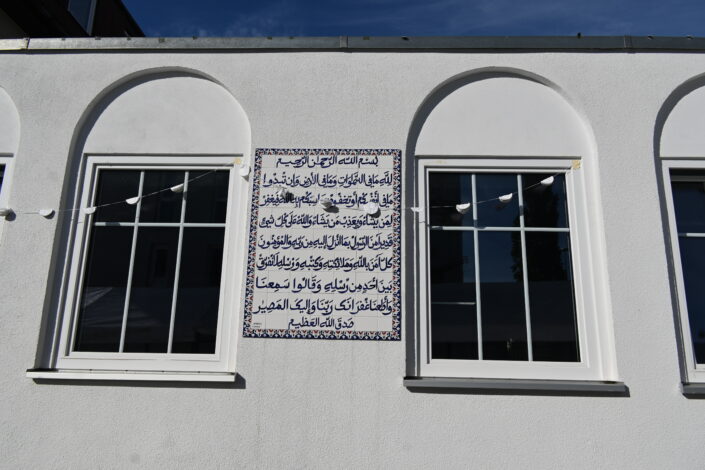 بسم الله الرحمن الرحيم
لله ما في السموات وما في الأرض وإن تبدوا
ما في أنفسكم أو تخفوه يحاسبكم به الله فيغفر
لمن يشاء ويعذب من يشاء والله على كل شيء
قدير آمن الرسول بما أنزل إليه من ربه والمؤمنون
كل آمن بالله وملائكته وكتبه ورسله لا نفرق
بين أحد من رسله وقالوا سمعنا
وأطعنا غفرانك ربنا وإليك المصير
صدق الله العظيم